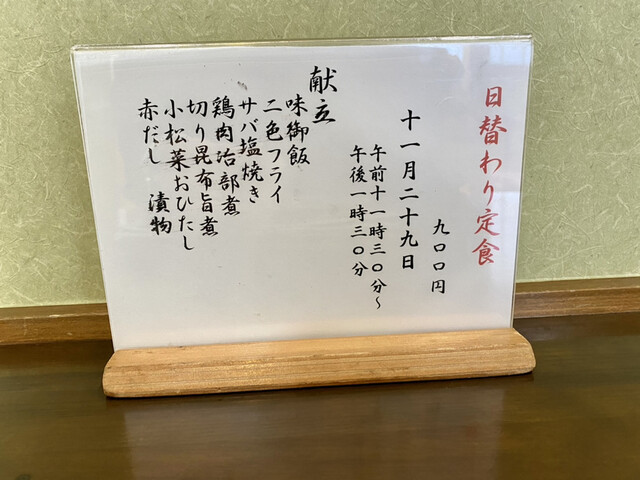 日替わり定食
九〇〇円
十一月二十九日
午前十一時三〇分～
午後一時三〇分
献立
味御飯
二色フライ
サバ塩焼き
鶏肉治部煮
切り昆布旨煮
小松菜おひたし
赤だし　漬物